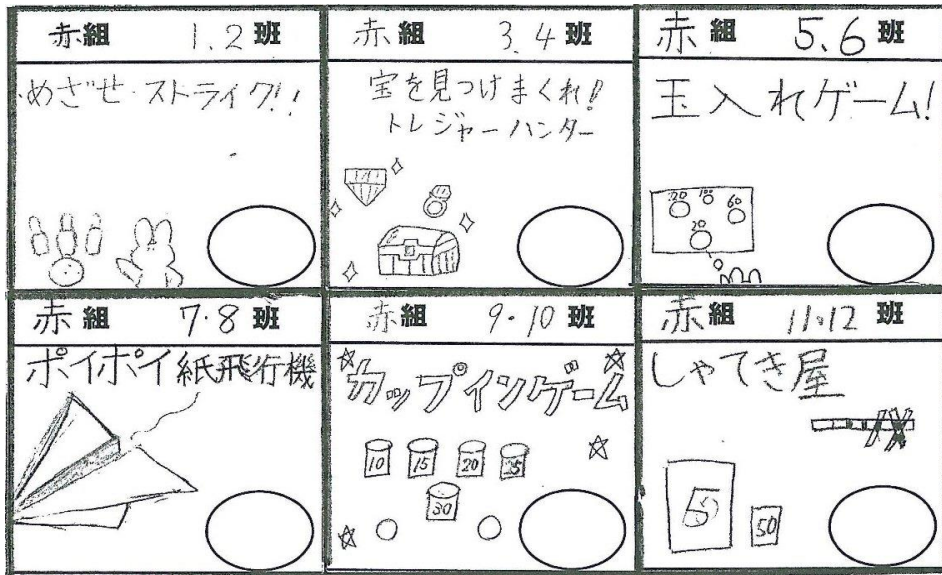 赤組 1.2 班
めざせ ストライク!!
赤組 3.4 班
宝を見つけまくれ!
トレジャーハンター
赤組 5.6 班
玉入れゲーム!
20 100 60
20
赤組 7・8 班
ポイポイ紙飛行機
赤組 9・10 班
カップインゲーム
10 15 20 25
30
赤組 11・12 班
しゃてき屋
5
50